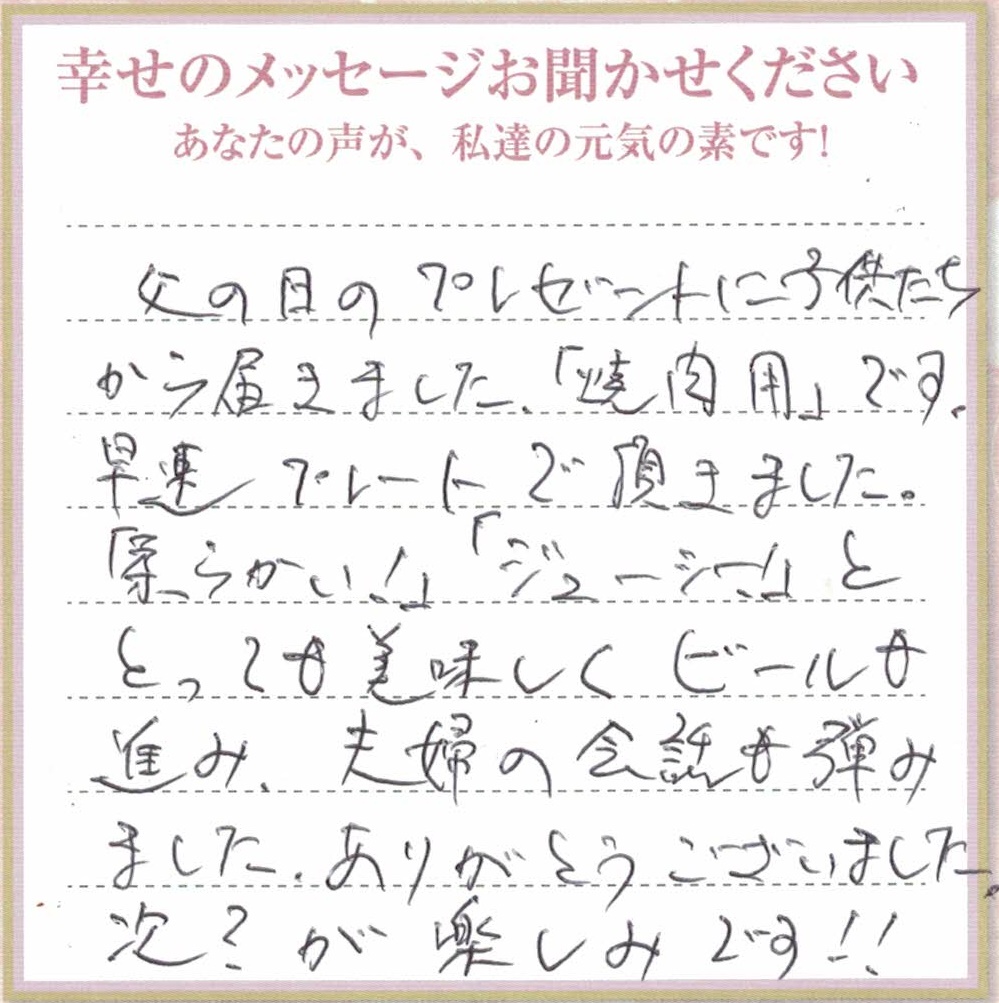 幸せのメッセージお聞かせください
あなたの声が、私達の元気の素です!
父の日のプレゼントに子供たち
から届きました。「焼肉用」です。
早速プレートで頂きました。
「柔らかい!」「ジューシー!」と
とっても美味しくビールも
進み、夫婦の会話も弾み
ました。ありがとうございました。
次?が楽しみです!!